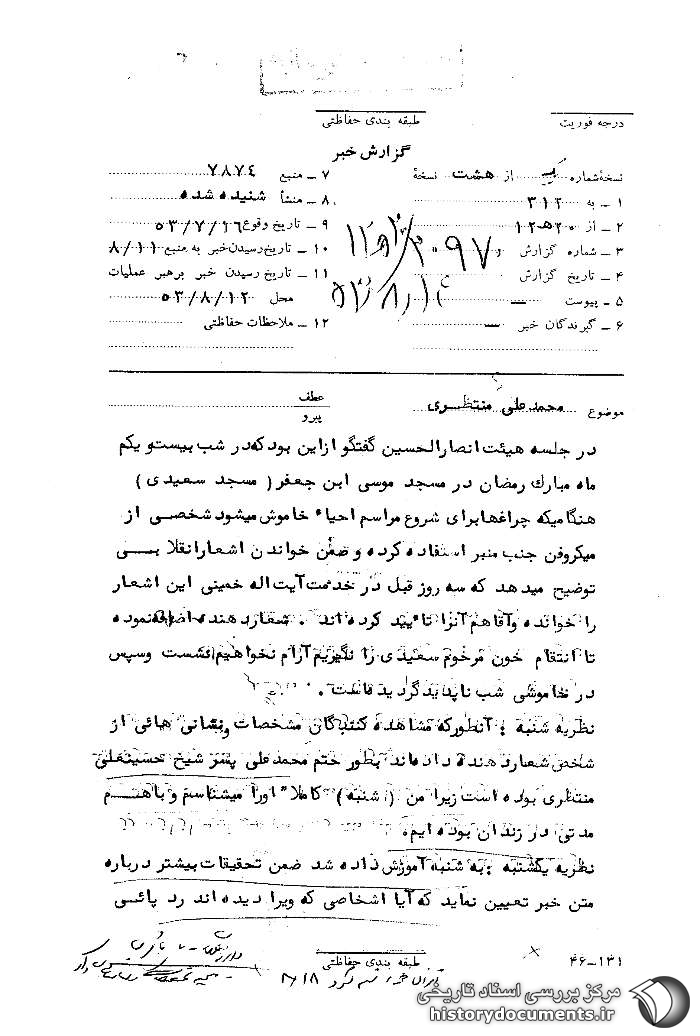 درجه فوریت
طبقه بندی حفاظتی
گزارش خبر
نسخهٔ شماره یک از هشت نسخهٔ
۱ ـ به ۳۱۲
۲ ـ از ۲۰ هـ ۱۲
۳ ـ شماره گزارش
۴ ـ تاریخ گزارش
۵ ـ پیوست —
۶ ـ گیرندگان خبر —
۷ ـ منبع ۷۸۷۴
۸ ـ منشأ شنیده شده
۹ ـ تاریخ وقوع ۵۳/۷/۱۶
۱۰ ـ تاریخ رسیدن خبر به منبع ۸/۱۱
۱۱ ـ تاریخ رسیدن خبر برهبر عملیات
محل ۵۳/۸/۱۲
۱۲ ـ ملاحظات حفاظتی
موضوع محمدعلی منتظری
عطف
پیرو
در جلسه هیئت انصارالحسین گفتگو ازاین بود که در شب بیست و یکم
ماه مبارک رمضان در مسجد موسی ابن جعفر ( مسجد سعیدی )
هنگامیکه چراغها برای شروع مراسم احیاء خاموش میشود شخصی از
میکروفن جنب منبر استفاده کرده و ضمن خواندن اشعار انقلابی
توضیح میدهد که سه روز قبل در خدمت آیت اله خمینی این اشعار
را خوانده و آقا هم آنرا تایید کرده اند . شعار دهنده اضافه نموده
تا انتقام خون مرحوم سعیدی را نگیریم آرام نخواهیم نشست وسپس
در خاموشی شب ناپدید گردیده است .
نظریه شنبه : آنطور که مشاهده کنندگان مشخصات ونشانی هائی از
شخص شعار دهنده داده اند بطور حتم محمدعلی پسر شیخ حسینعلی
منتظری بوده است زیرا من ( شنبه ) کاملا" اورا میشناسم و باهم
مدتی در زندان بوده ایم .
نظریه یکشنبه : به شنبه آموزش داده شد ضمن تحقیقات بیشتر درباره
متن خبر تعیین نماید که آیا اشخاصی که ویرا دیده اند رد پائی
طبقه بندی حفاظتی
۴۶-۱۳۱
مرکز بررسی اسناد تاریخی
historydocuments.ir